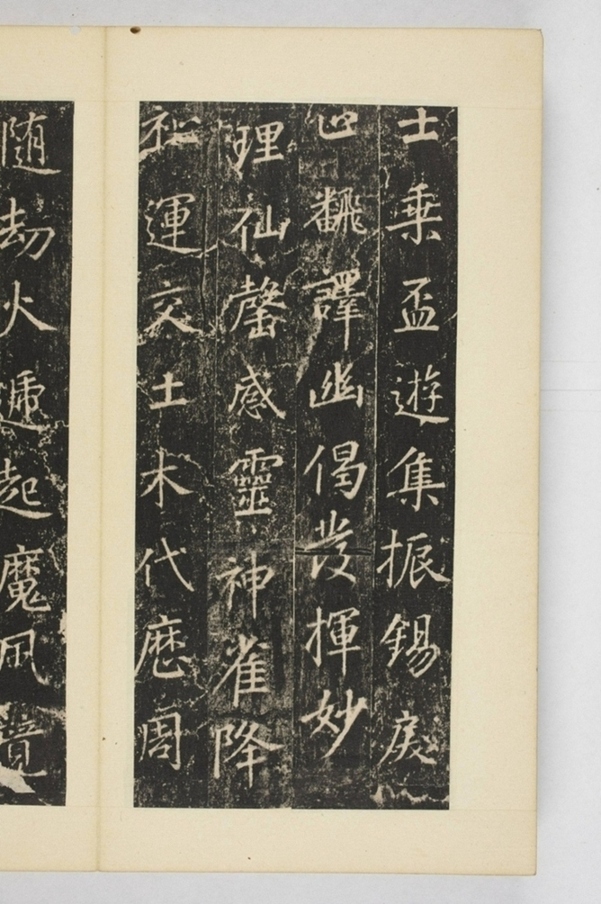 士乘盃遊集振錫戾
止飜譯幽偈發揮妙
理仙罄感靈神雀降
祉運交土木代歷周
隨劫火遞起魔風競